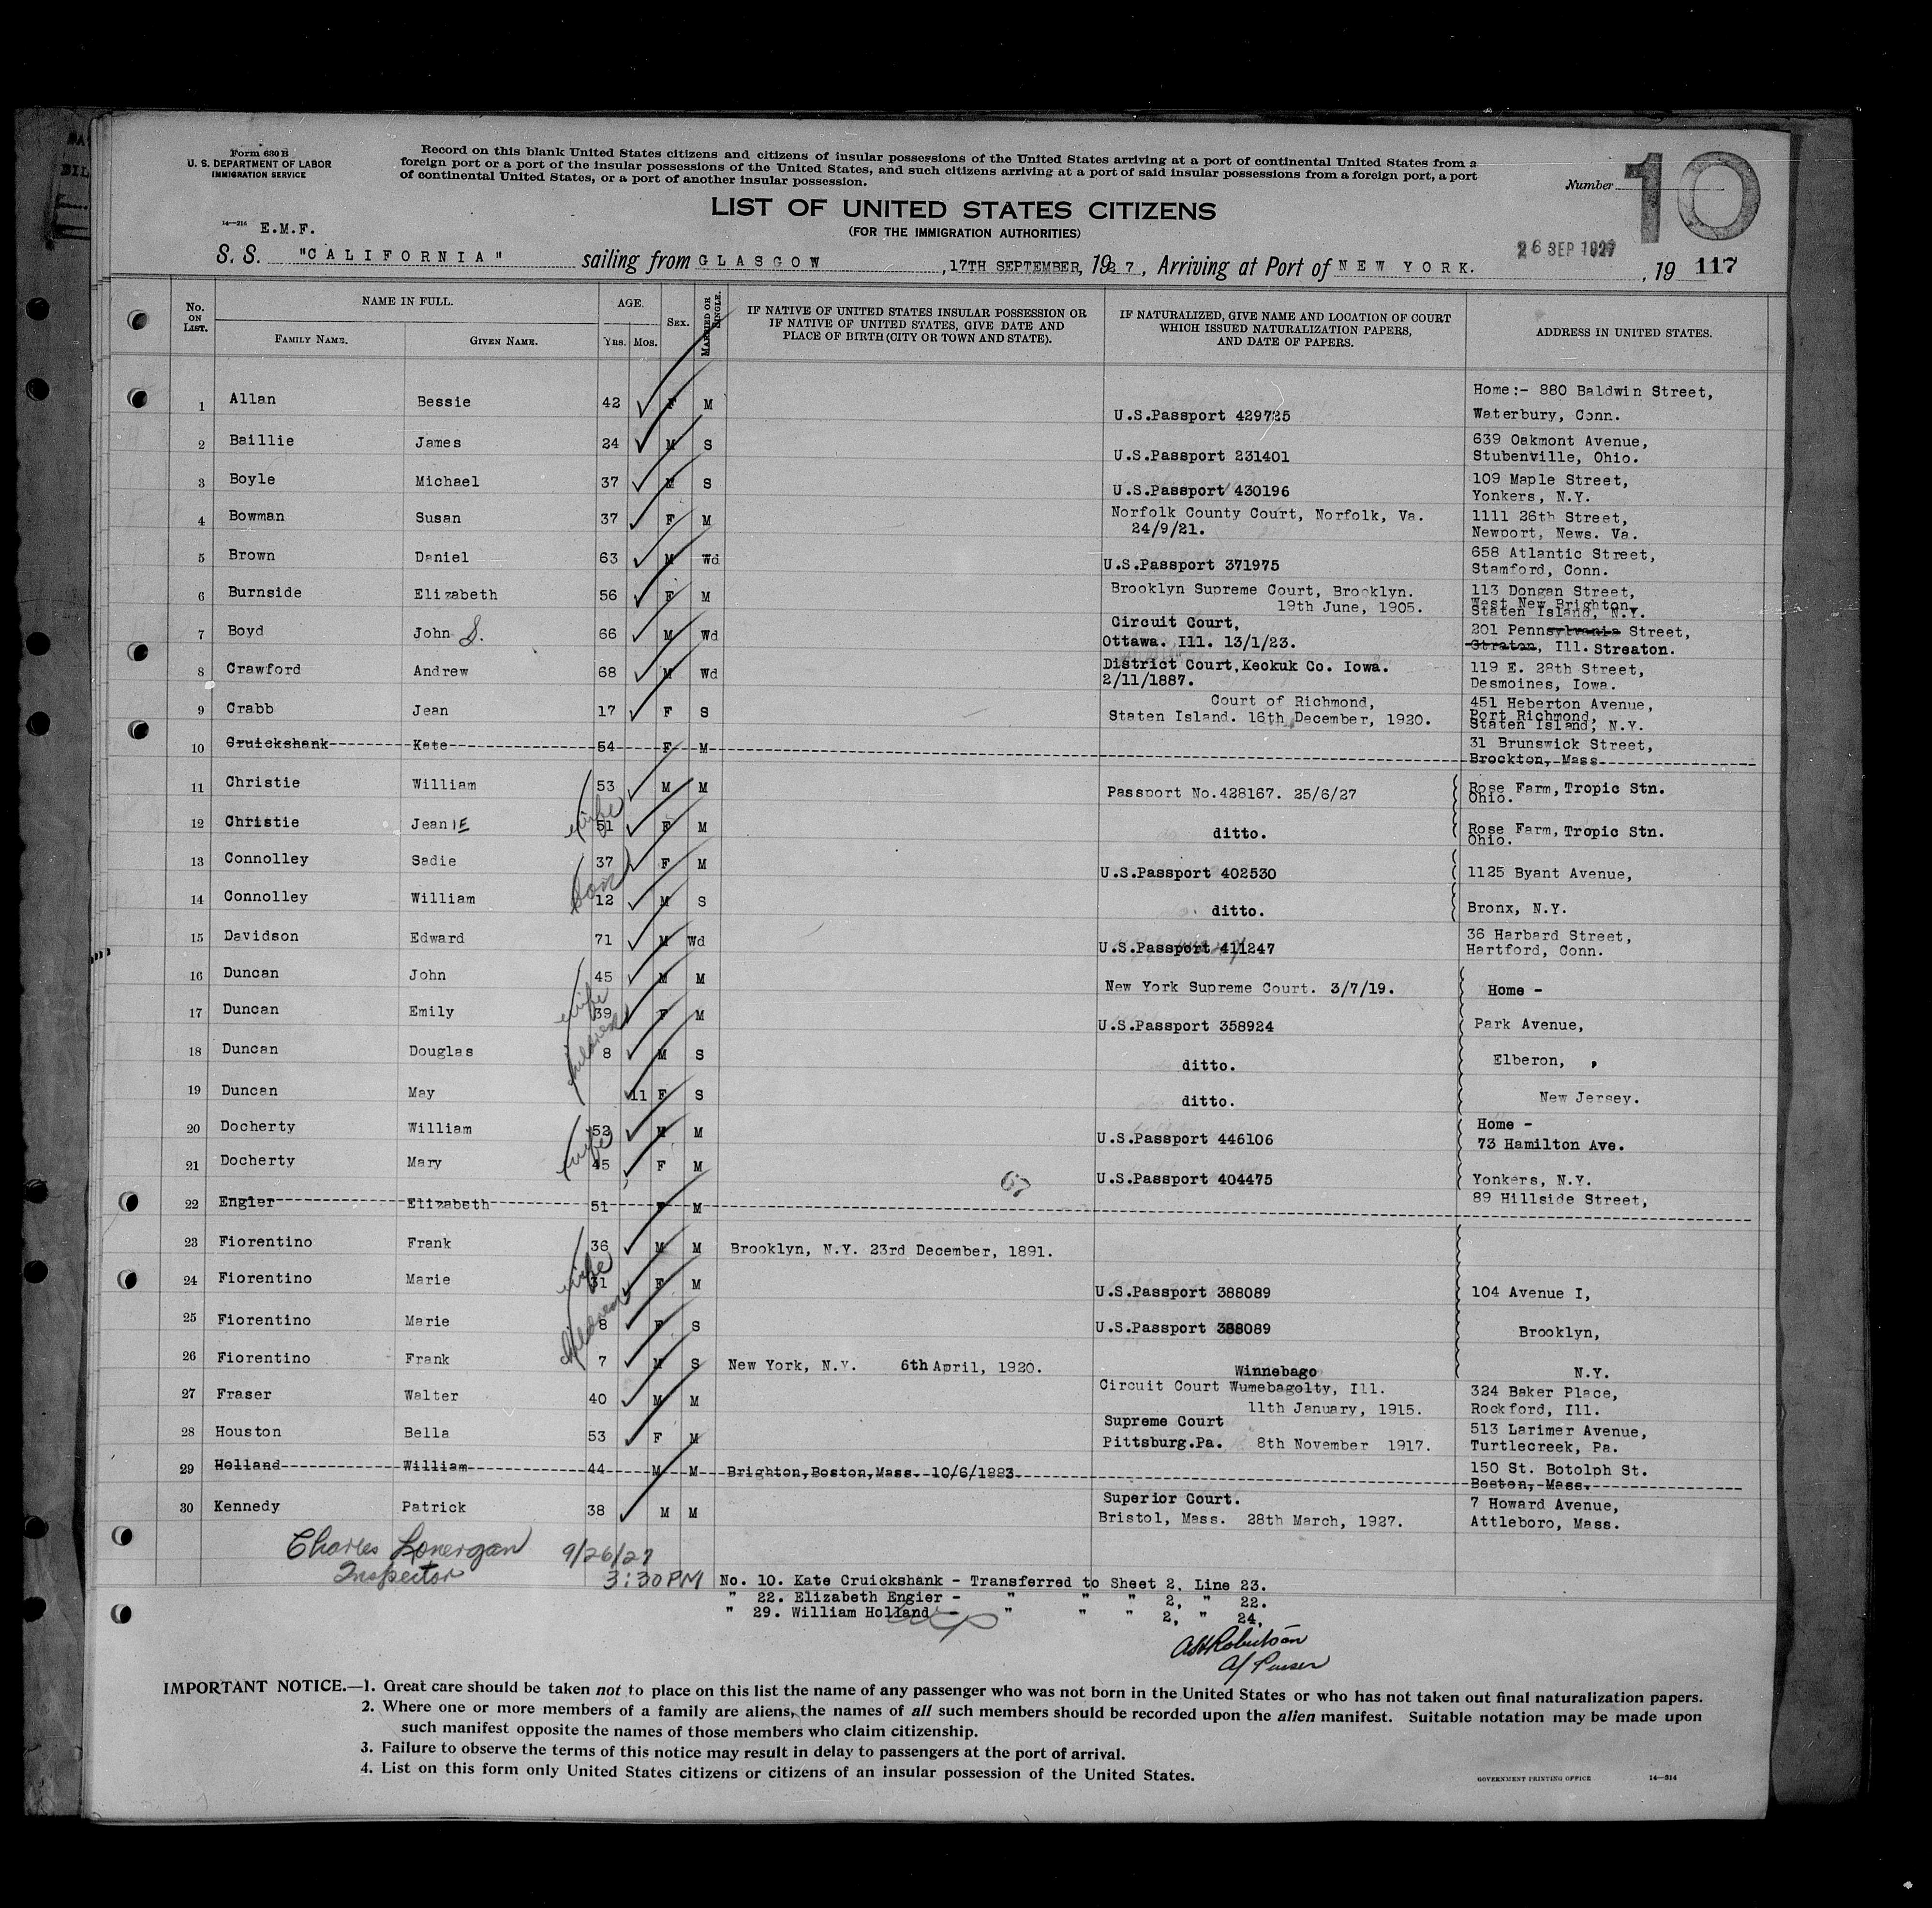 Form 630 B
U. S. DEPARTMENT OF LABOR
IMMIGRATION SERVICE
Record on this blank United States citizens and citizens of insular possessions of the United States arriving at a port of continental United States from a
foreign port or a port of the insular possessions of the United States, and such citizens arriving at a port of said insular possessions from a foreign port, a port
of continental United States, or a port of another insular possession.
Number 10
LIST OF UNITED STATES CITIZENS
(FOR THE IMMIGRATION AUTHORITIES)
14—214 E.M.F.
26 SEP 1927
S. S. "CALIFORNIA" sailing from GLASGOW, 17TH SEPTEMBER, 1927, Arriving at Port of NEW YORK. , 19 117
No. ON LIST. NAME IN FULL. FAMILY NAME. GIVEN NAME. AGE. Yrs. Mos. SEX. MARRIED OR SINGLE. IF NATIVE OF UNITED STATES INSULAR POSSESSION OR IF NATIVE OF UNITED STATES, GIVE DATE AND PLACE OF BIRTH (CITY OR TOWN AND STATE). IF NATURALIZED, GIVE NAME AND LOCATION OF COURT WHICH ISSUED NATURALIZATION PAPERS, AND DATE OF PAPERS. ADDRESS IN UNITED STATES.
1 Allan Bessie 42 F M U.S.Passport 429725 Home:- 880 Baldwin Street, Waterbury, Conn.
2 Baillie James 24 M S U.S.Passport 231401 639 Oakmont Avenue, Stubenville, Ohio.
3 Boyle Michael 37 M S U.S.Passport 430196 109 Maple Street, Yonkers, N.Y.
4 Bowman Susan 37 F M Norfolk County Court, Norfolk, Va. 24/9/21. 1111 26th Street, Newport, News. Va.
5 Brown Daniel 63 M Wd U.S.Passport 371975 658 Atlantic Street, Stamford, Conn.
6 Burnside Elizabeth 56 F M Brooklyn Supreme Court, Brooklyn. 19th June, 1905. 113 Dongan Street, West New Brighton, Staten Island, N.Y.
7 Boyd John S. 66 M Wd Circuit Court, Ottawa. Ill. 13/1/23. 201 Pennsylvania Street, Straton, Ill. Streaton.
8 Crawford Andrew 68 M Wd District Court, Keokuk Co. Iowa. 2/11/1887. 119 E. 28th Street, Desmoines, Iowa.
9 Crabb Jean 17 F S Court of Richmond, Staten Island. 16th December, 1920. 451 Heberton Avenue, Port Richmond, Staten Island, N.Y.
10 Cruickshank Kate 54 F M 31 Brunswick Street, Brockton, Mass
11 Christie William 53 M M Passport No.428167. 25/6/27 Rose Farm, Tropic Stn. Ohio.
12 Christie JeanIE wife 51 F M ditto. Rose Farm, Tropic Stn. Ohio.
13 Connolley Sadie 37 F M U.S.Passport 402530 1125 Byant Avenue,
14 Connolley William son 12 M S ditto. Bronx, N.Y.
15 Davidson Edward 71 M Wd U.S.Passport 411247 36 Harbard Street, Hartford, Conn.
16 Duncan John 45 M M New York Supreme Court. 3/7/19. Home -
17 Duncan Emily wife 39 F M U.S.Passport 358924 Park Avenue,
18 Duncan Douglas children 8 M S ditto. Elberon, ,
19 Duncan May 11 F S ditto. New Jersey.
20 Docherty William 52 M M U.S.Passport 446106 Home - 73 Hamilton Ave.
21 Docherty Mary wife 45 F M U.S.Passport 404475 Yonkers, N.Y.
67
22 Engier Elizabeth 51 F M 89 Hillside Street,
23 Fiorentino Frank 36 M M Brooklyn, N.Y. 23rd December, 1891.
24 Fiorentino Marie wife 31 F M U.S.Passport 388089 104 Avenue I,
25 Fiorentino Marie children 8 F S U.S.Passport 388089 Brooklyn,
26 Fiorentino Frank 7 M S New York, N.Y. 6th April, 1920. N.Y.
27 Fraser Walter 40 M M Winnebago Circuit Court Wumebagolty, Ill. 11th January, 1915. 324 Baker Place, Rockford, Ill.
28 Houston Bella 53 F M Supreme Court Pittsburg.Pa. 8th November 1917. 513 Larimer Avenue, Turtlecreek, Pa.
29 Holland William 44 M M Brighton,Boston,Mass. 10/6/1883 150 St. Botolph St. Boston, Mass.
30 Kennedy Patrick 38 M M Superior Court. Bristol, Mass. 28th March, 1927. 7 Howard Avenue, Attleboro, Mass.
Charles Lonergan 9/26/27
Inspector 3:30PM
No. 10. Kate Cruickshank - Transferred to Sheet 2, Line 23.
" 22. Elizabeth Engier - " " " 2, " 22.
" 29. William Holland - " " " 2, " 24.
ASH Robertson
A/ Purser
IMPORTANT NOTICE.—1. Great care should be taken not to place on this list the name of any passenger who was not born in the United States or who has not taken out final naturalization papers.
2. Where one or more members of a family are aliens, the names of all such members should be recorded upon the alien manifest. Suitable notation may be made upon
such manifest opposite the names of those members who claim citizenship.
3. Failure to observe the terms of this notice may result in delay to passengers at the port of arrival.
4. List on this form only United States citizens or citizens of an insular possession of the United States.
GOVERNMENT PRINTING OFFICE 14—214